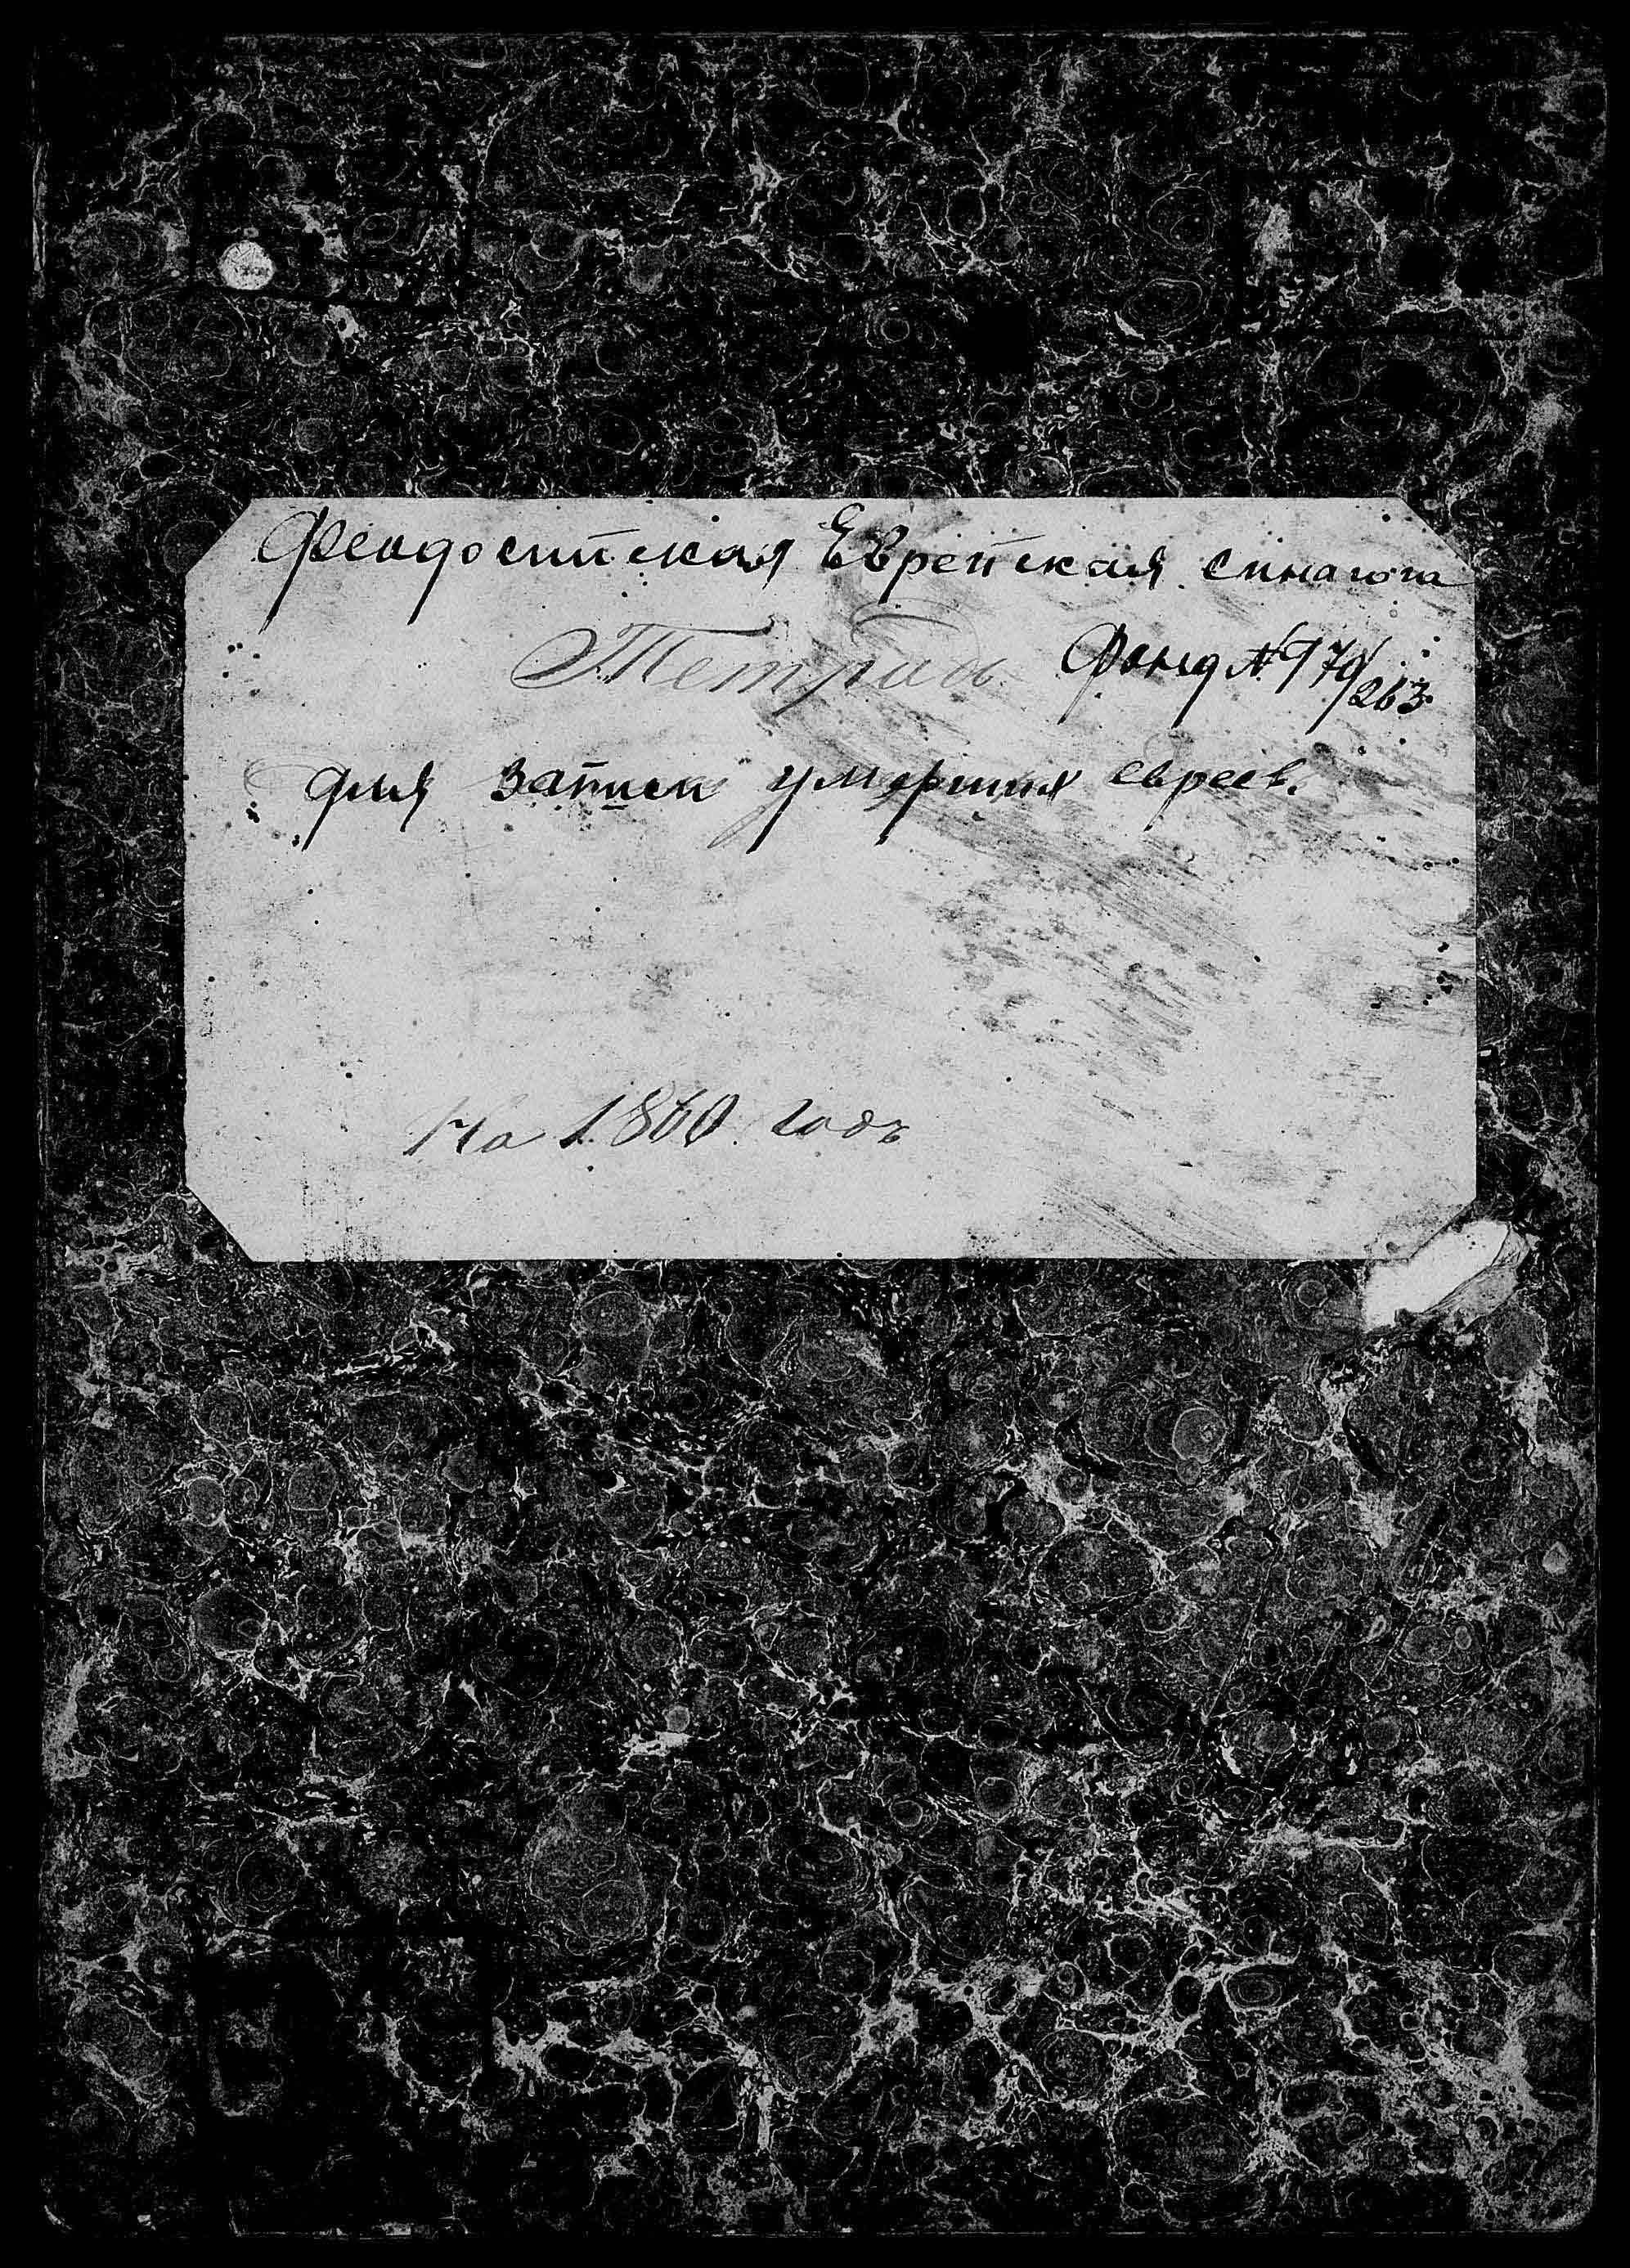 Феодосийская Еврейская синагога
Тетрадь Фонд №
263
для записи умерших евреев.
На 1860 годъ